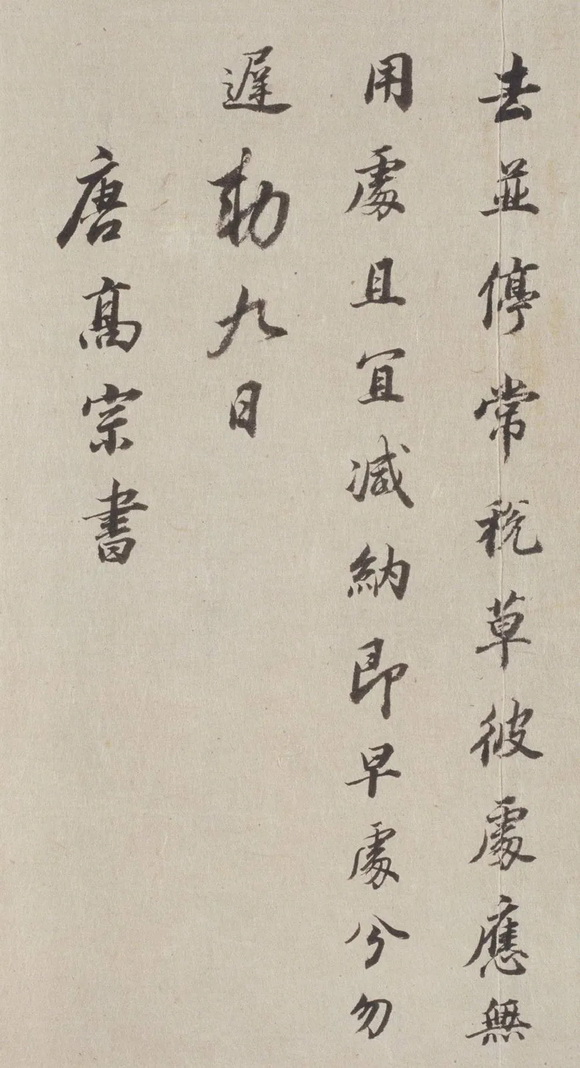 去並停常稅草彼處應無
用處且宜減納即早處分勿
遲勅九日
唐高宗書